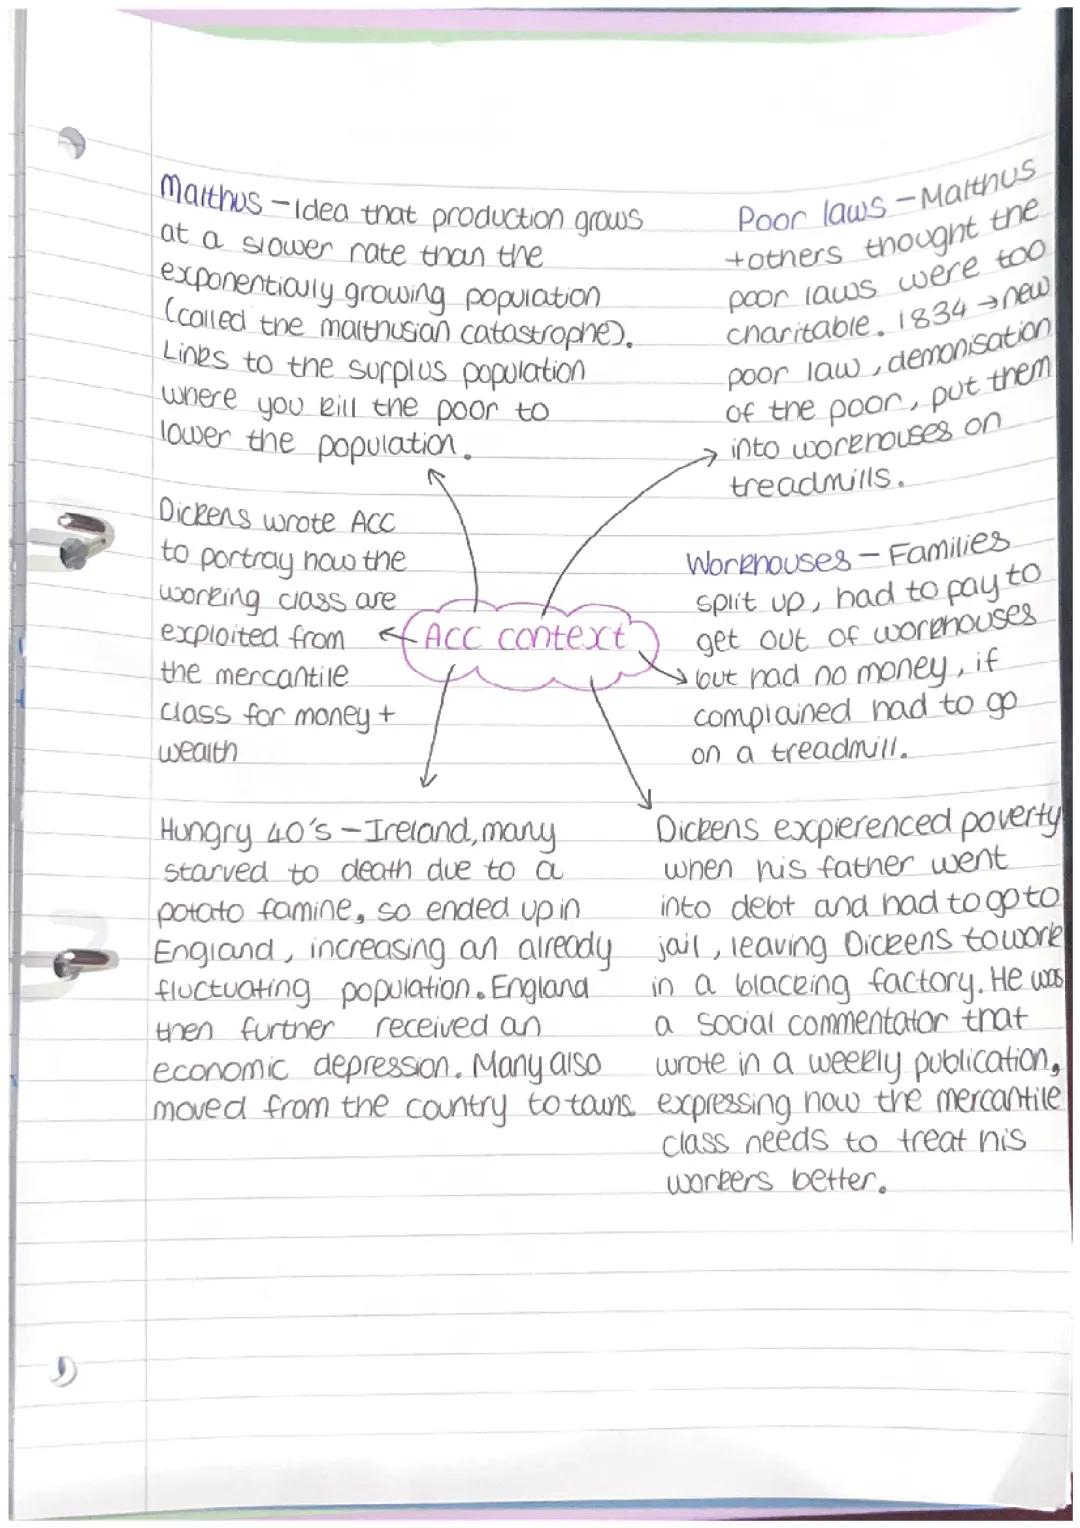 Malthus - Idea that production grows
at a slower rate than the
exponentially growing population
(called the malthusian catastrophe).
Links to the surplus population
where you kill the poor to
lower the population.
Poor laws - Malthus
+others thought the
poor laws were too
charitable. 1834 → new
poor law, demonisation
of the poor, put them
into workhouses on
treadmills.
Dickens wrote ACC
to portray how the
working class are
exploited from
the mercantile
class for money +
wealth
ACC context
Workhouses - Families
split up, had to pay to
get out of workhouses
but had no money, if
complained had to go
on a treadmill.
Hungry 40's - Ireland, many
starved to death due to a
potato famine, so ended up in
England, increasing an already
fluctuating population. England
then further received an
economic depression. Many also
moved from the country to towns.
Dickens expierenced poverty
when his father went
into debt and had to go to
jail, leaving Dickens to work
in a blacking factory. He was
a social commentator that
wrote in a weekly publication,
expressing how the mercantile
class needs to treat his
workers better.